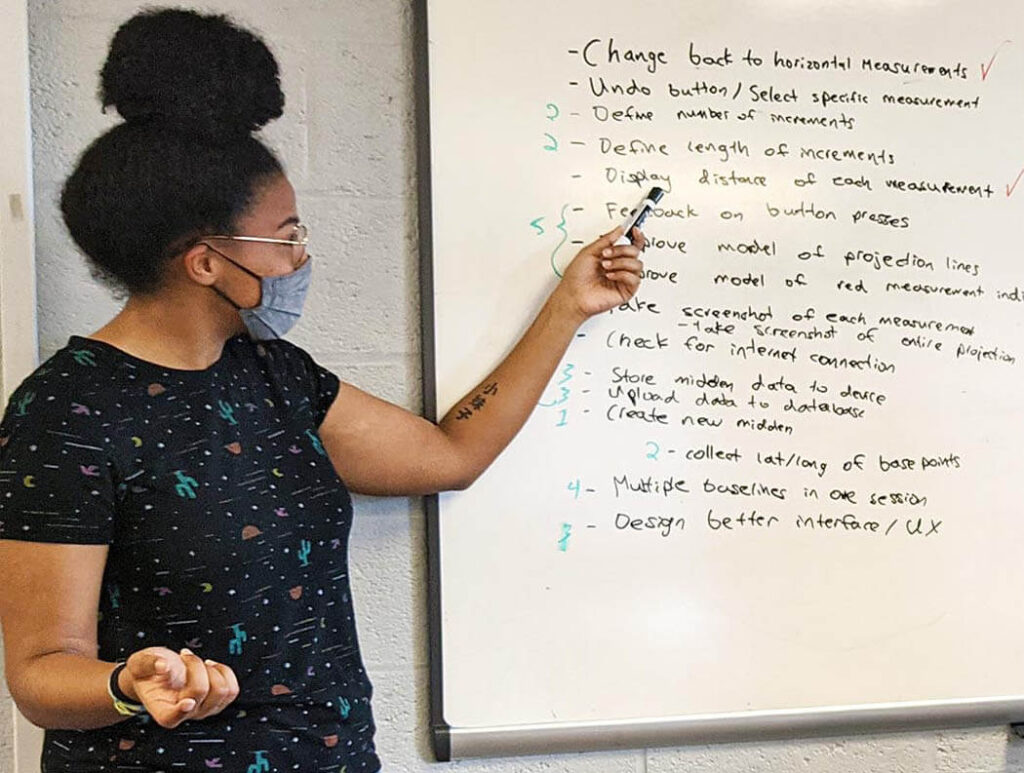 - Change back to horizontal measurements ✓
- Undo button / Select specific measurement
2 - Define number of increments
2 - Define length of increments
- Display distance of each measurement ✓
5 { - Feedback on button presses
- prove model of projection lines
prove model of red measurement indi
Take screenshot of each measurement
- take screenshot of entire projection
- Check for internet connection
3 - Store midden data to device
3 - Upload data to database
1 - Create new midden
2 - collect lat/long of base points
4 - Multiple baselines in one session
3 - Design better interface / UX
小妹子